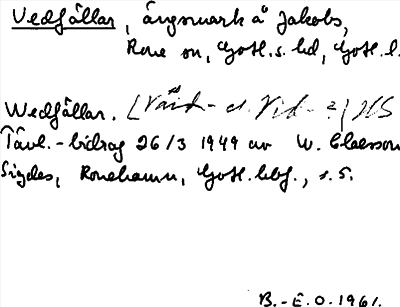 Vedfällar, ängsmark å Jakobs,
Rone sn, Gotl. s. hd, Gotl. l.
Wedfällar. [Väd- el. Vid- ?] HS
Tävl.-bidrag 26/3 1949 av W. Claesson
Sigdes, Ronehamn, Gotl. , s. 5.
B.-E. O. 1961.